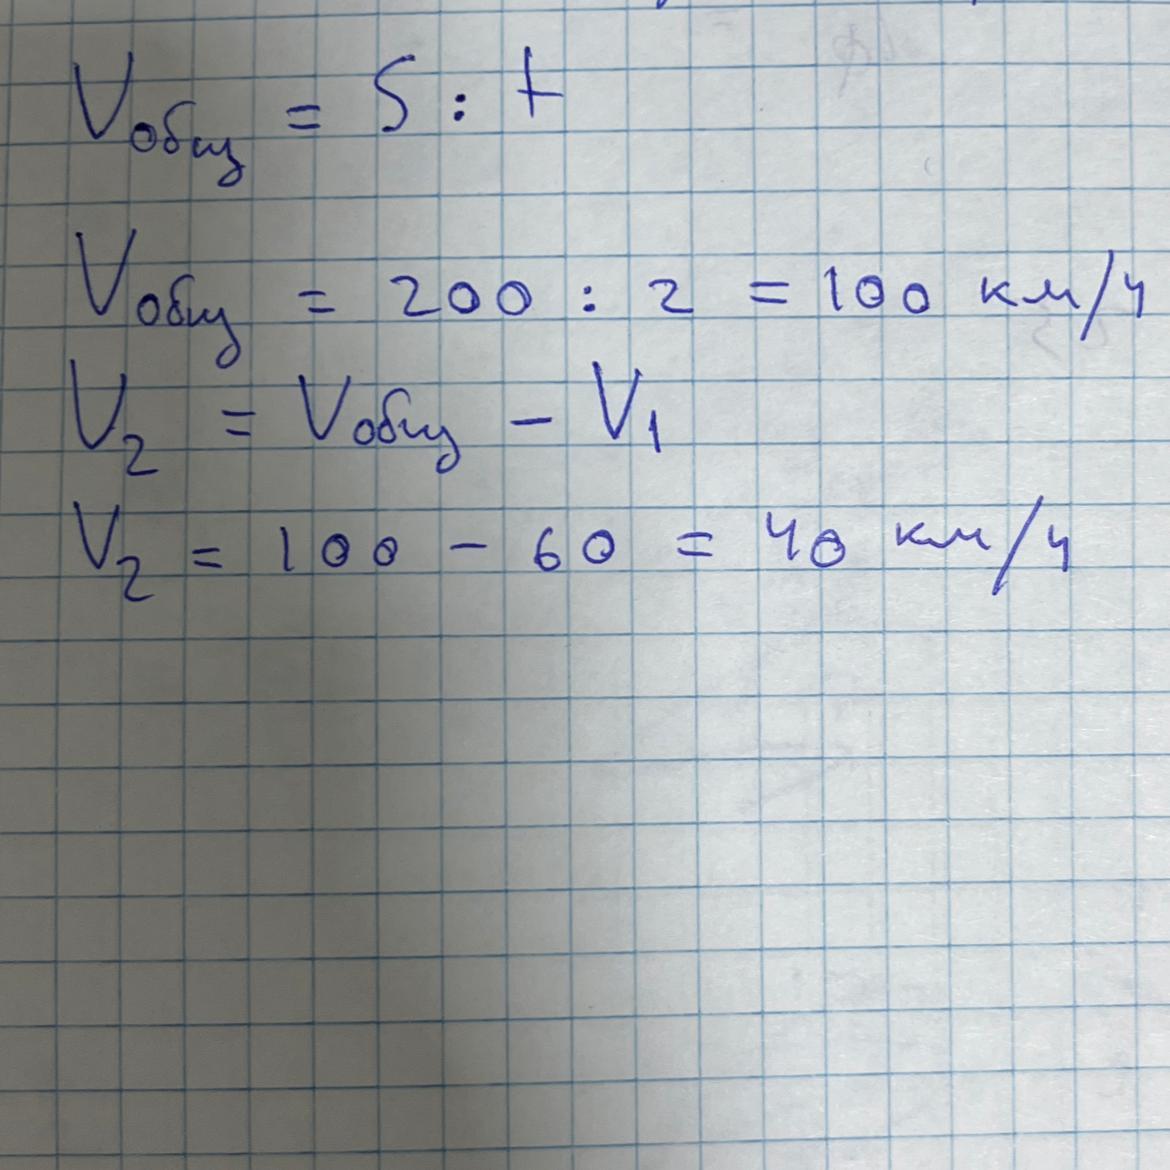 Vобщ = S : t
Vобщ = 200 : 2 = 100 км/ч
V₂ = Vобщ - V₁
V₂ = 100 - 60 = 40 км/ч